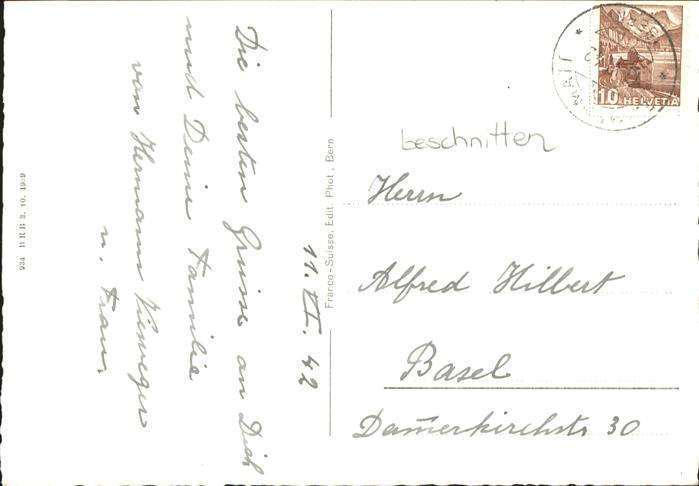 Die besten Grüsse an Dich
und Deine Familie
von Hermann Vieweger
u. Frau.
11. VI. 42
934 BRB 3. 10. 1939
Franco-Suisse, Edit. Phot., Bern
10 HELVETIA
beschnitten
Herrn
Alfred Hilbert
Basel
Dammerkirchstr 30